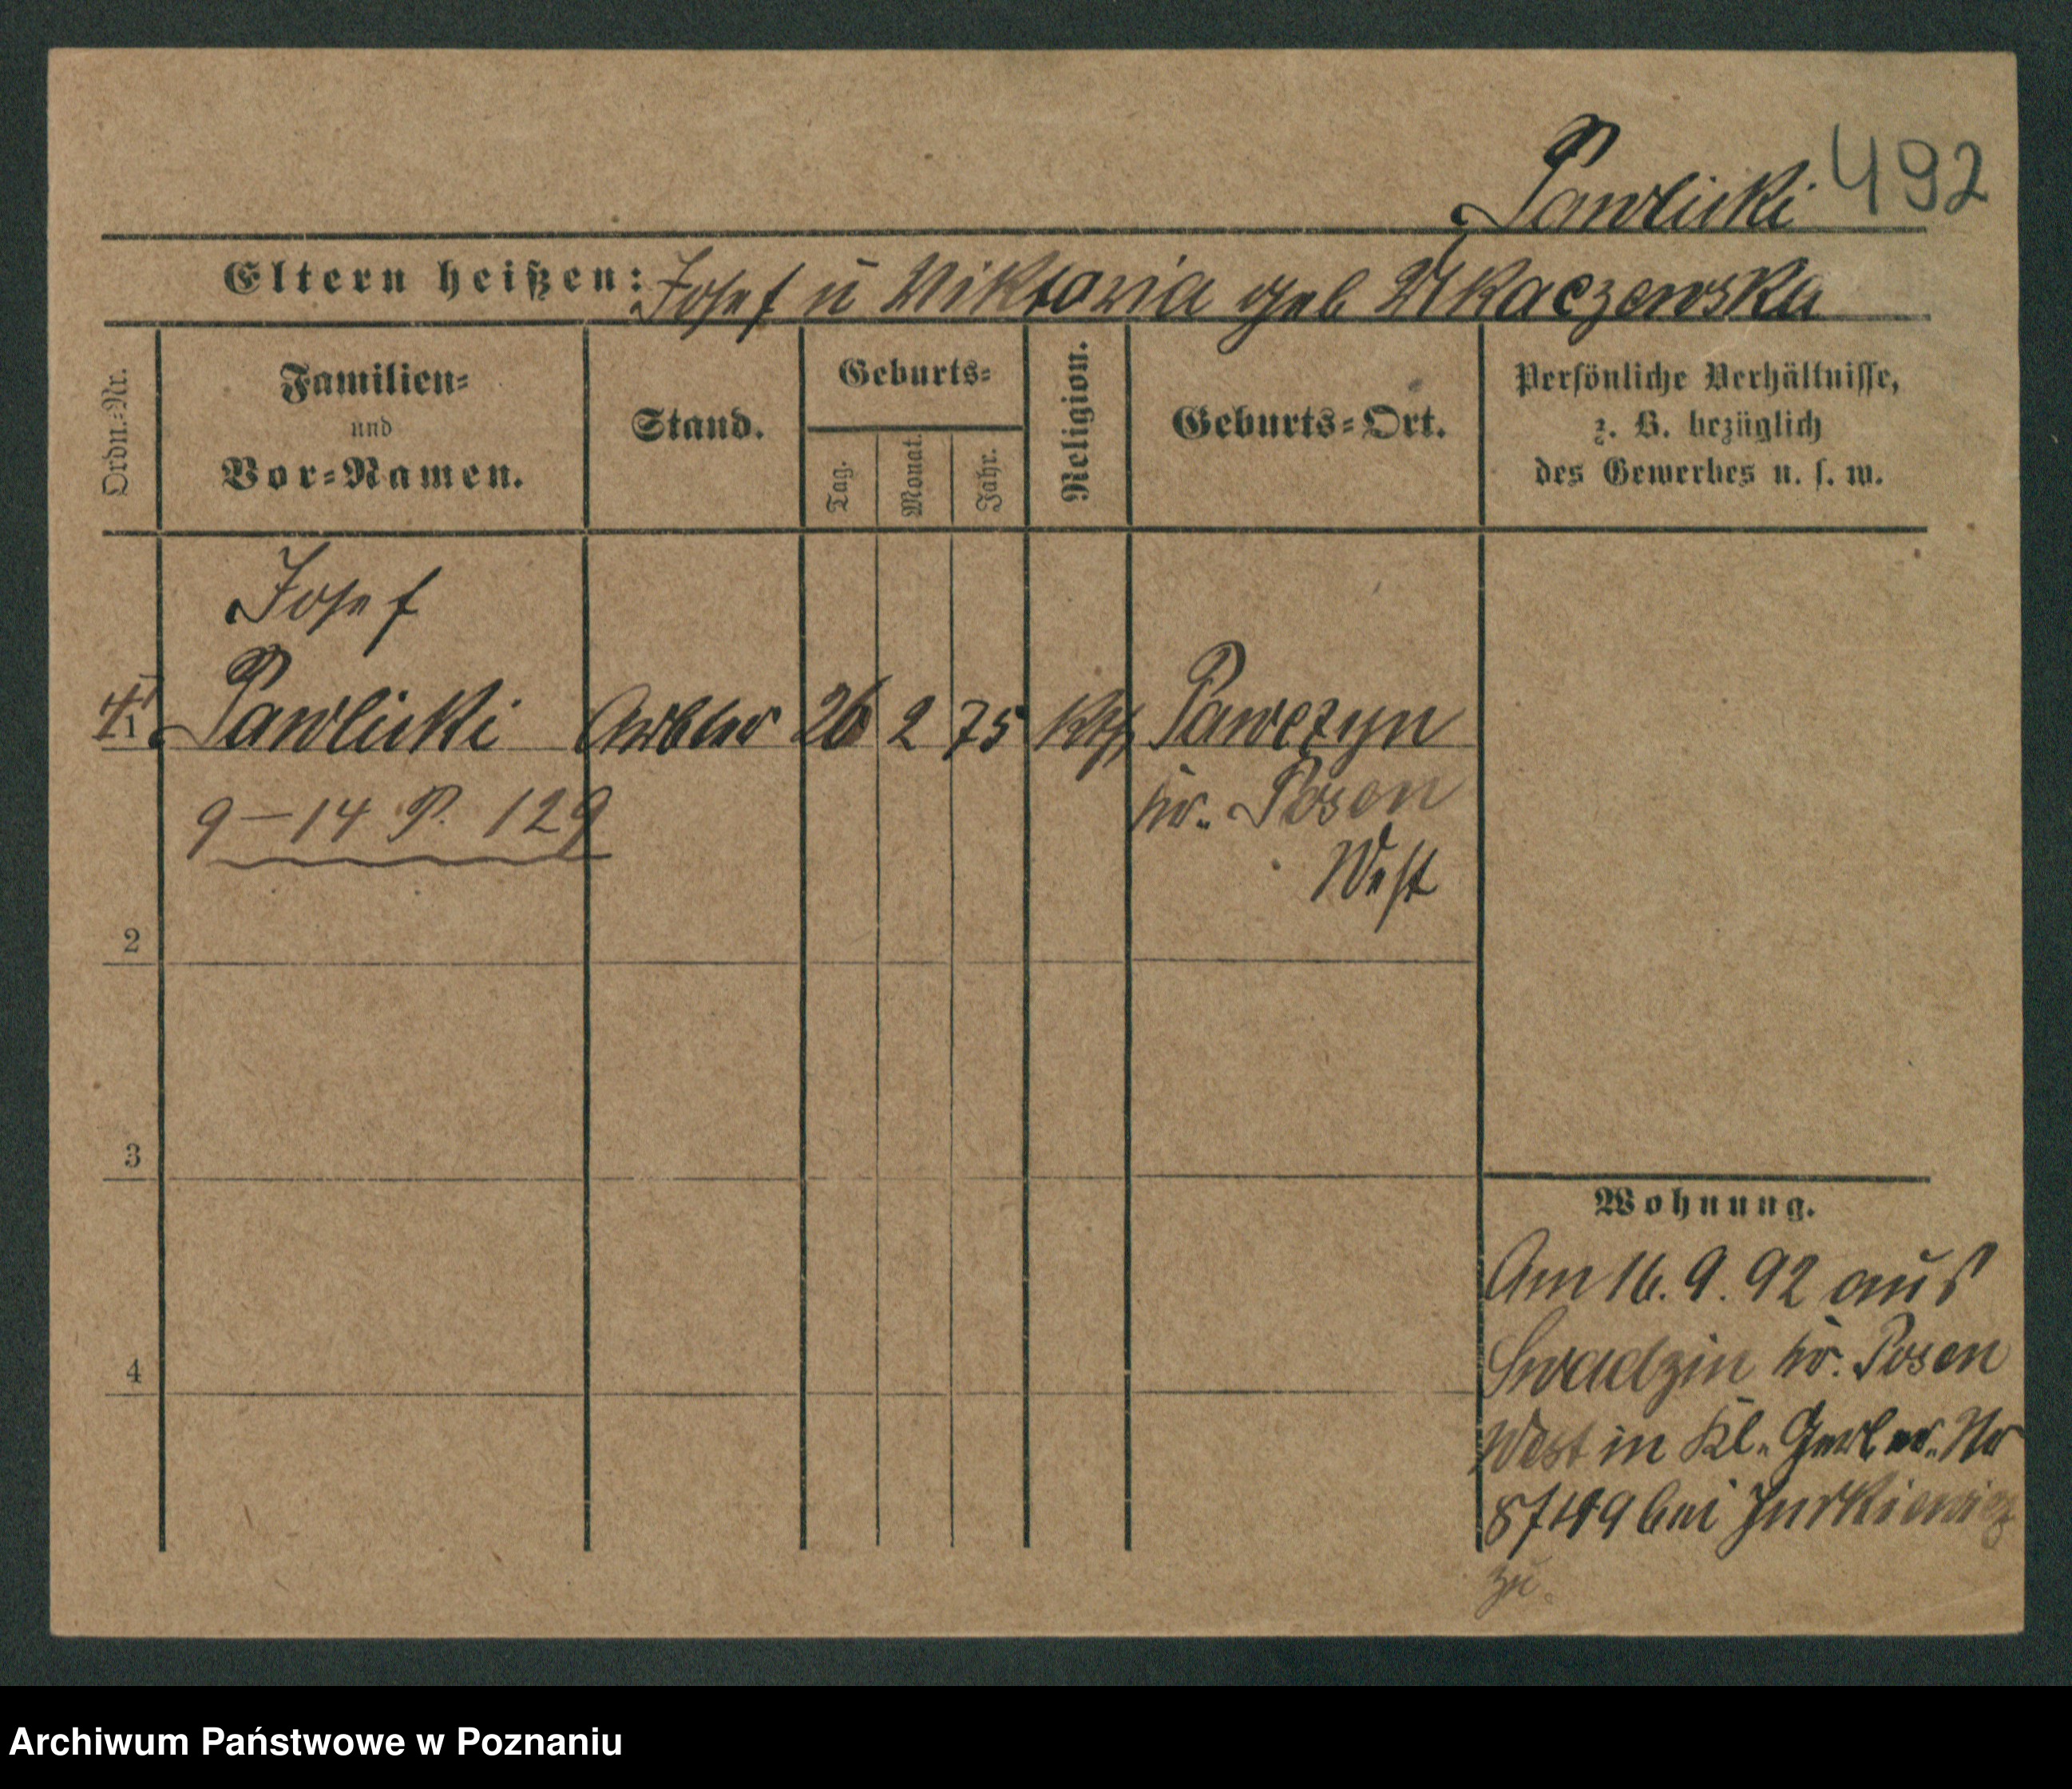 Pawlicki 492
Eltern heißen: Josef u Viktoria geb Mkaczewska
Ordn.-Nr.
Familien-
und
Vor-Namen.
Stand.
Geburts-
Tag.
Monat.
Jahr.
Religion.
Geburts-Ort.
Persönliche Verhältnisse,
z. B. bezüglich
des Gewerbes u. s. w.
Josef
1 Pawlicki Arbtr 26 2 75 kth Pawczyn
Kr. Posen
West
9-14 P. 129
2
3
4
Wohnung.
Am 16. 9. 92 aus
Swadzin Kr. Posen
West in Kl. Gerber. Nr
8/149 bei Jurkiewicz
zu.
Archiwum Państwowe w Poznaniu